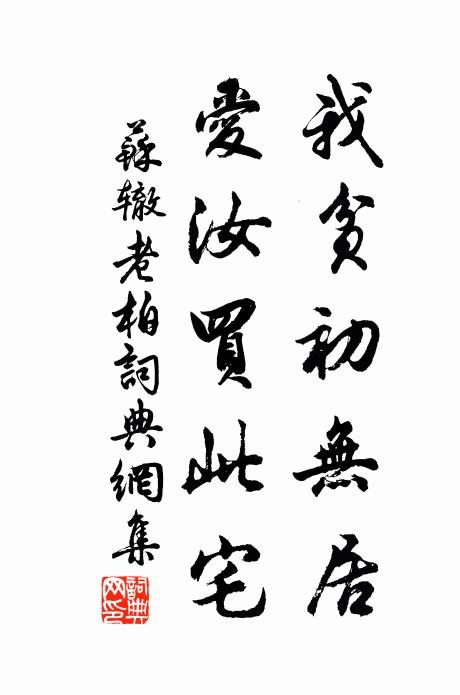 我貧初無居
愛汝買此宅
蘇辙老柏詞典網集
詞典网印